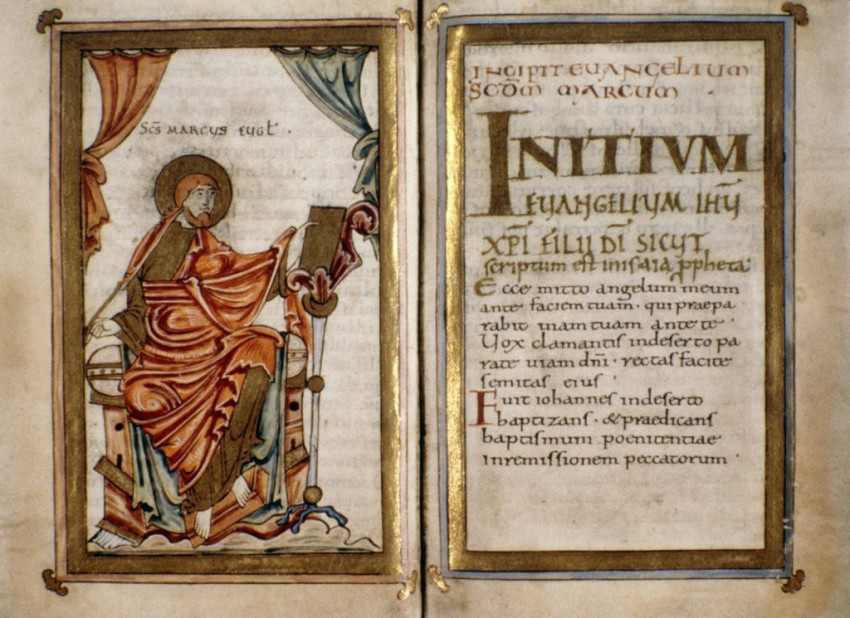 SCS MARCUS EVGL ·
INCIPIT EUANGELIUM
SCDM MARCUM ·
INITIUM
EUANGELIUM IHU
XPI FILII DI SICUT
scriptum est inisaia ppheta·
Ecce mitto angelum meum
ante faciem tuam · qui praepa
rabit uiam tuam ante te ·
Uox clamantis indeserto pa
rate uiam dni · rectas facite
semitas eius ·
Fuit iohannes indeserto
baptizans · &praedicans
baptismum poenitentiae
inremissionem peccatorum ·